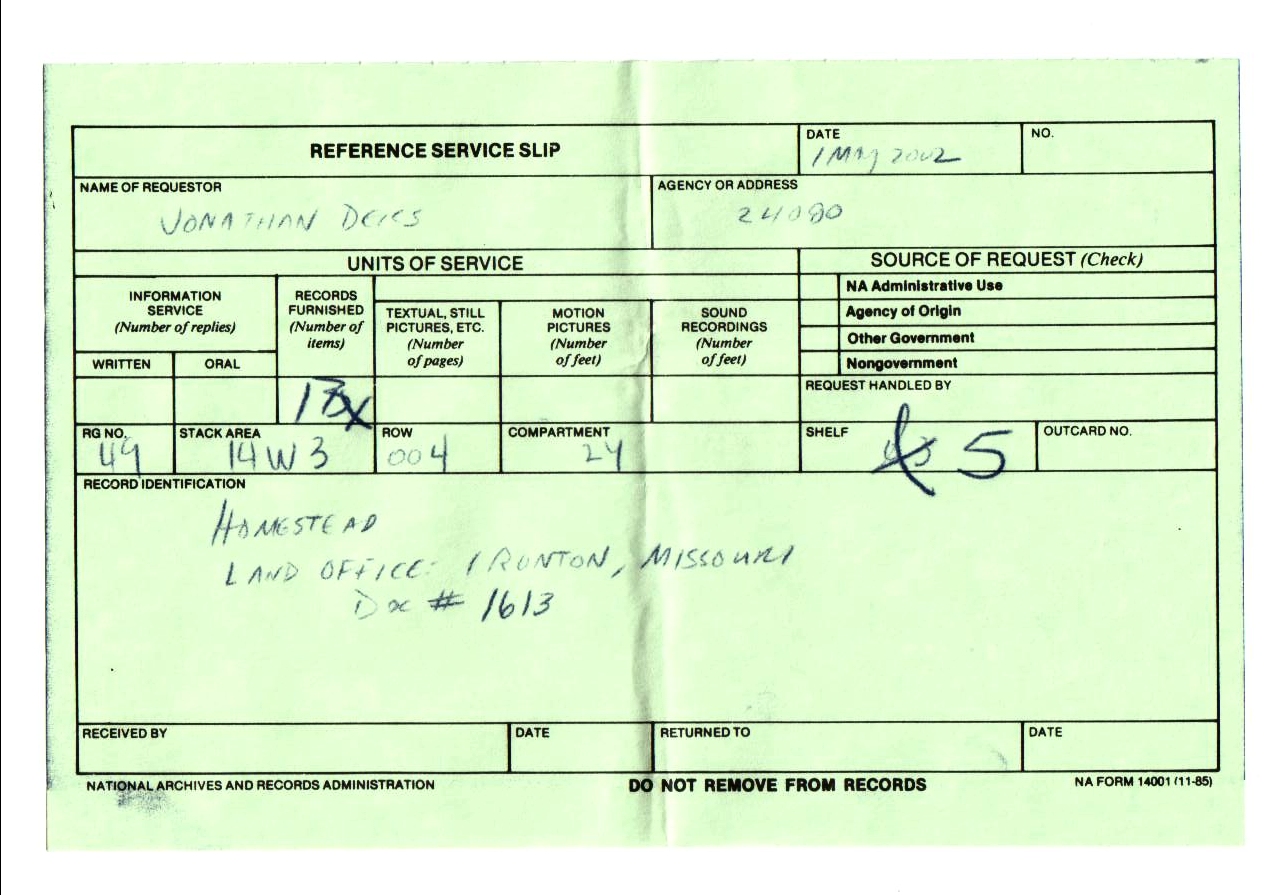 REFERENCE SERVICE SLIP
DATE
1 May 2002
NO.
NAME OF REQUESTOR
JONATHAN DEISS
AGENCY OR ADDRESS
24080
UNITS OF SERVICE
SOURCE OF REQUEST (Check)
INFORMATION
SERVICE
(Number of replies)
WRITTEN
ORAL
RECORDS
FURNISHED
(Number of
items)
TEXTUAL, STILL
PICTURES, ETC.
(Number
of pages)
MOTION
PICTURES
(Number
of feet)
SOUND
RECORDINGS
(Number
of feet)
NA Administrative Use
Agency of Origin
Other Government
Nongovernment
1 Bx
REQUEST HANDLED BY
RG NO.
49
STACK AREA
14W3
ROW
004
COMPARTMENT
24
SHELF
5
OUTCARD NO.
RECORD IDENTIFICATION
HOMESTEAD
LAND OFFICE: IRONTON, MISSOURI
Doc # 1613
RECEIVED BY
DATE
RETURNED TO
DATE
NATIONAL ARCHIVES AND RECORDS ADMINISTRATION
DO NOT REMOVE FROM RECORDS
NA FORM 14001 (11-85)